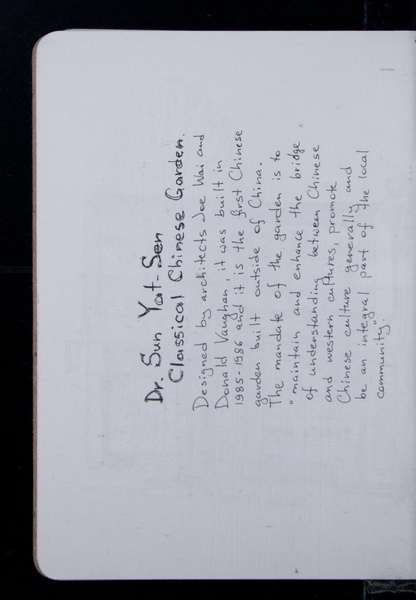 Dr. Sun Yat-Sen
Classical Chinese Garden.
Designed by architects Joe Wai and
Donald Vaughan, it was built in
1985-1986 and it is the first Chinese
garden built outside of China.
The mandate of the garden is to
"maintain and enhance the bridge
of understanding between Chinese
and western cultures, promote
Chinese culture generally and
be an integral part of the local
community".